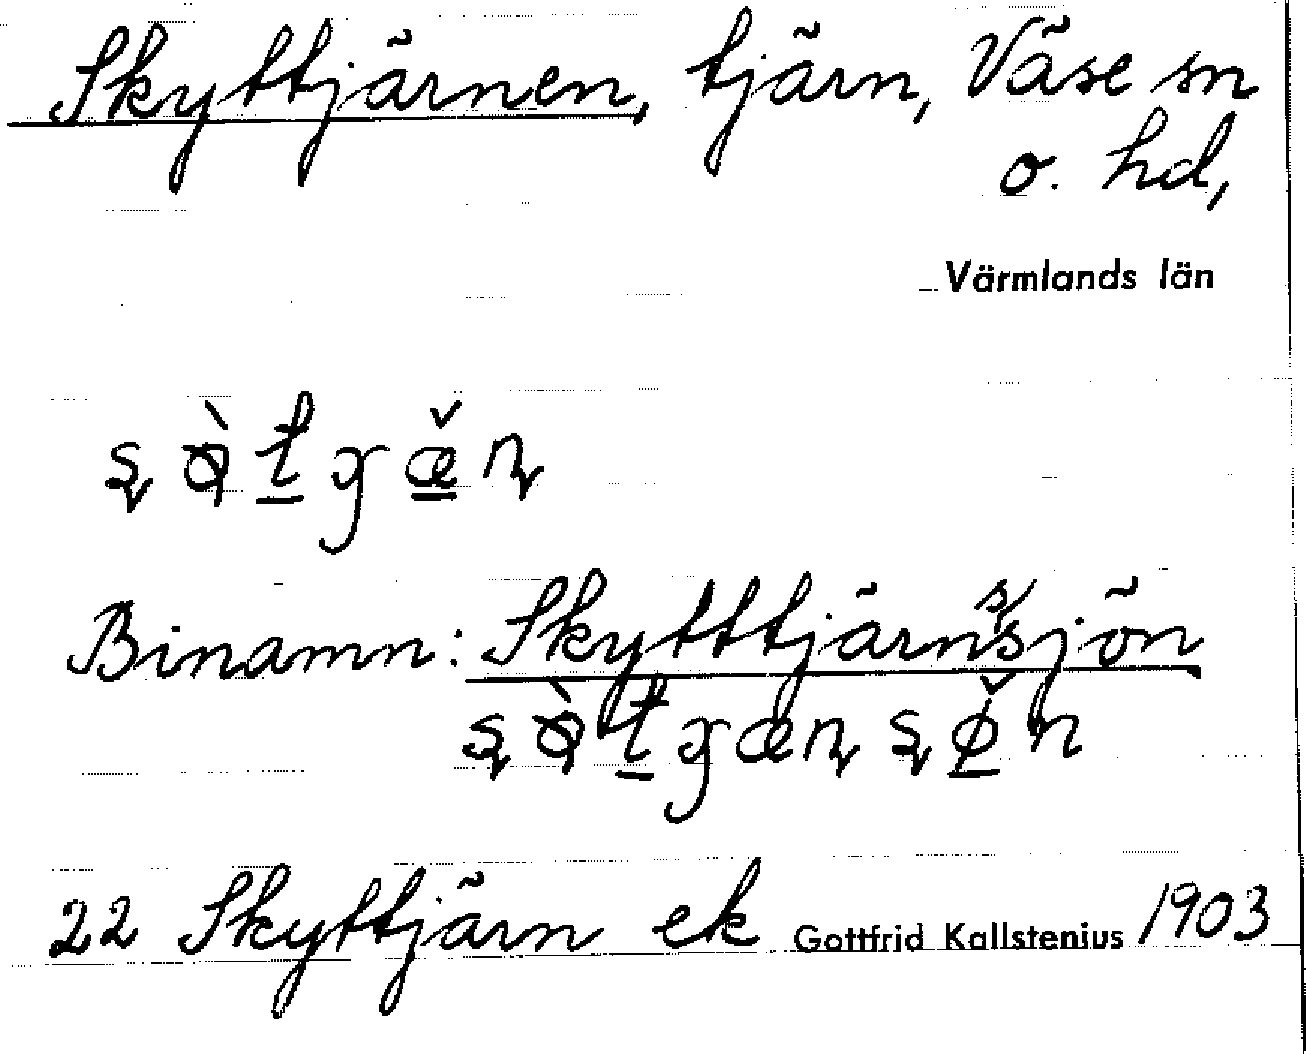 Skyttjärnen, tjärn, Väse sn
o. hd,
Värmlands län
Binamn: Skytttjärnssjön
22 Skyttjärn ek Gottfrid Kallstenius 1903